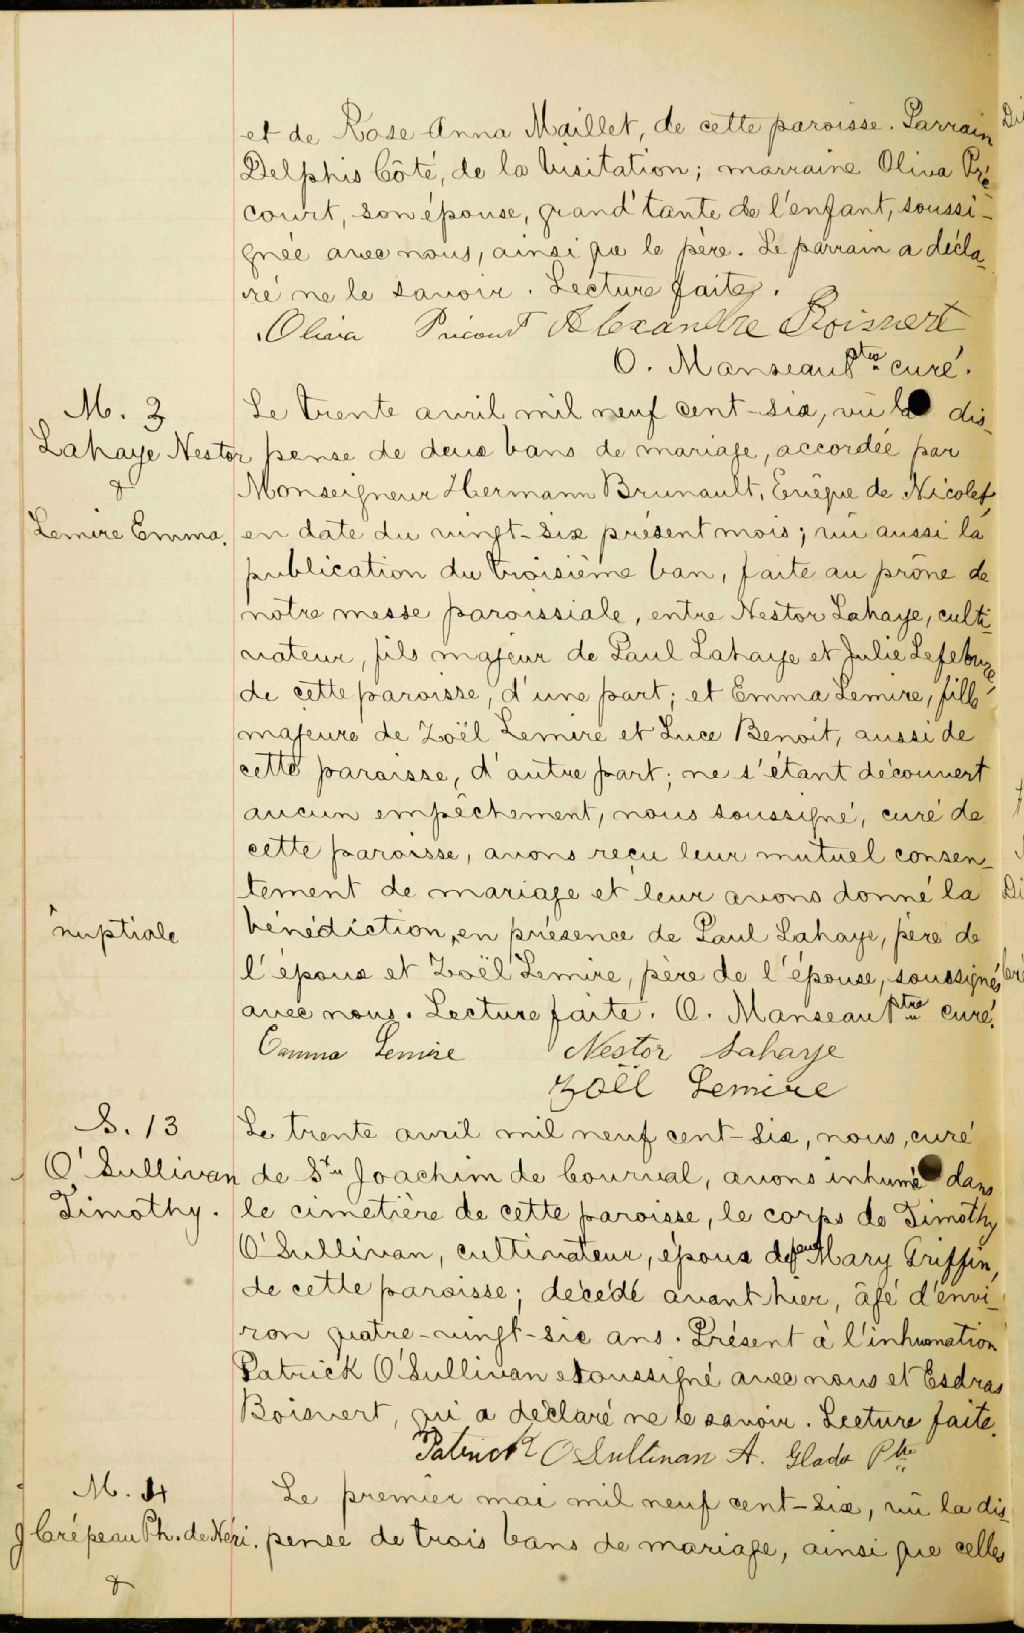 et de Rose-Anna Maillet, de cette paroisse. Parrain
Delphis Côté, de la Visitation; marraine Oliva Pré-
court, son épouse, grand'tante de l'enfant, soussi-
gnée avec nous, ainsi que le père. Le parrain a décla-
ré ne le savoir. Lecture faite.
Oliva Précourt Alexandre Boisvert
O. Manseau Ptre curé.
M. 3
Lahaye Nestor
&
Lemire Emma.
Le trente avril mil neuf cent-six, vû la dis-
pense de deux bans de mariage, accordée par
Monseigneur Hermann Brunault, Evêque de Nicolet,
en date du vingt-six présent mois; vû aussi la
publication du troisième ban, faite au prône de
notre messe paroissiale, entre Nestor Lahaye, culti-
vateur, fils majeur de Paul Lahaye et Julie Lefebvre,
de cette paroisse, d'une part; et Emma Lemire, fille
majeure de Zoël Lemire et Luce Benoit, aussi de
cette paroisse, d'autre part; ne s'étant découvert
aucun empêchement, nous soussigné, curé de
cette paroisse, avons reçu leur mutuel consen-
tement de mariage et leur avons donné la
^
nuptiale
bénédiction ^ en présence de Paul Lahaye, père de
l'époux et Zoël Lemire, père de l'épouse, soussignés
avec nous. Lecture faite. O. Manseau Ptre curé.
Emma Lemire Nestor Lahaye
Zoël Lemire
S. 13
O'Sullivan
Timothy.
Le trente avril mil neuf cent-six, nous, curé
de St Joachim de Courval, avons inhumé dans
le cimetière de cette paroisse, le corps de Timothy
O'Sullivan, cultivateur, époux de feue Mary Griffin,
de cette paroisse; décédé avant hier, âgé d'envi-
ron quatre-vingt-six ans. Présent à l'inhumation
Patrick O'Sullivan soussigné avec nous et Esdras
Boisvert, qui a déclaré ne le savoir. Lecture faite.
Patrick O Sullivan A. Gladu Ptre
M. 4
Crépeau Ph. de Néri.
&
Le premier mai mil neuf cent-six, vû la dis-
pense de trois bans de mariage, ainsi que celles